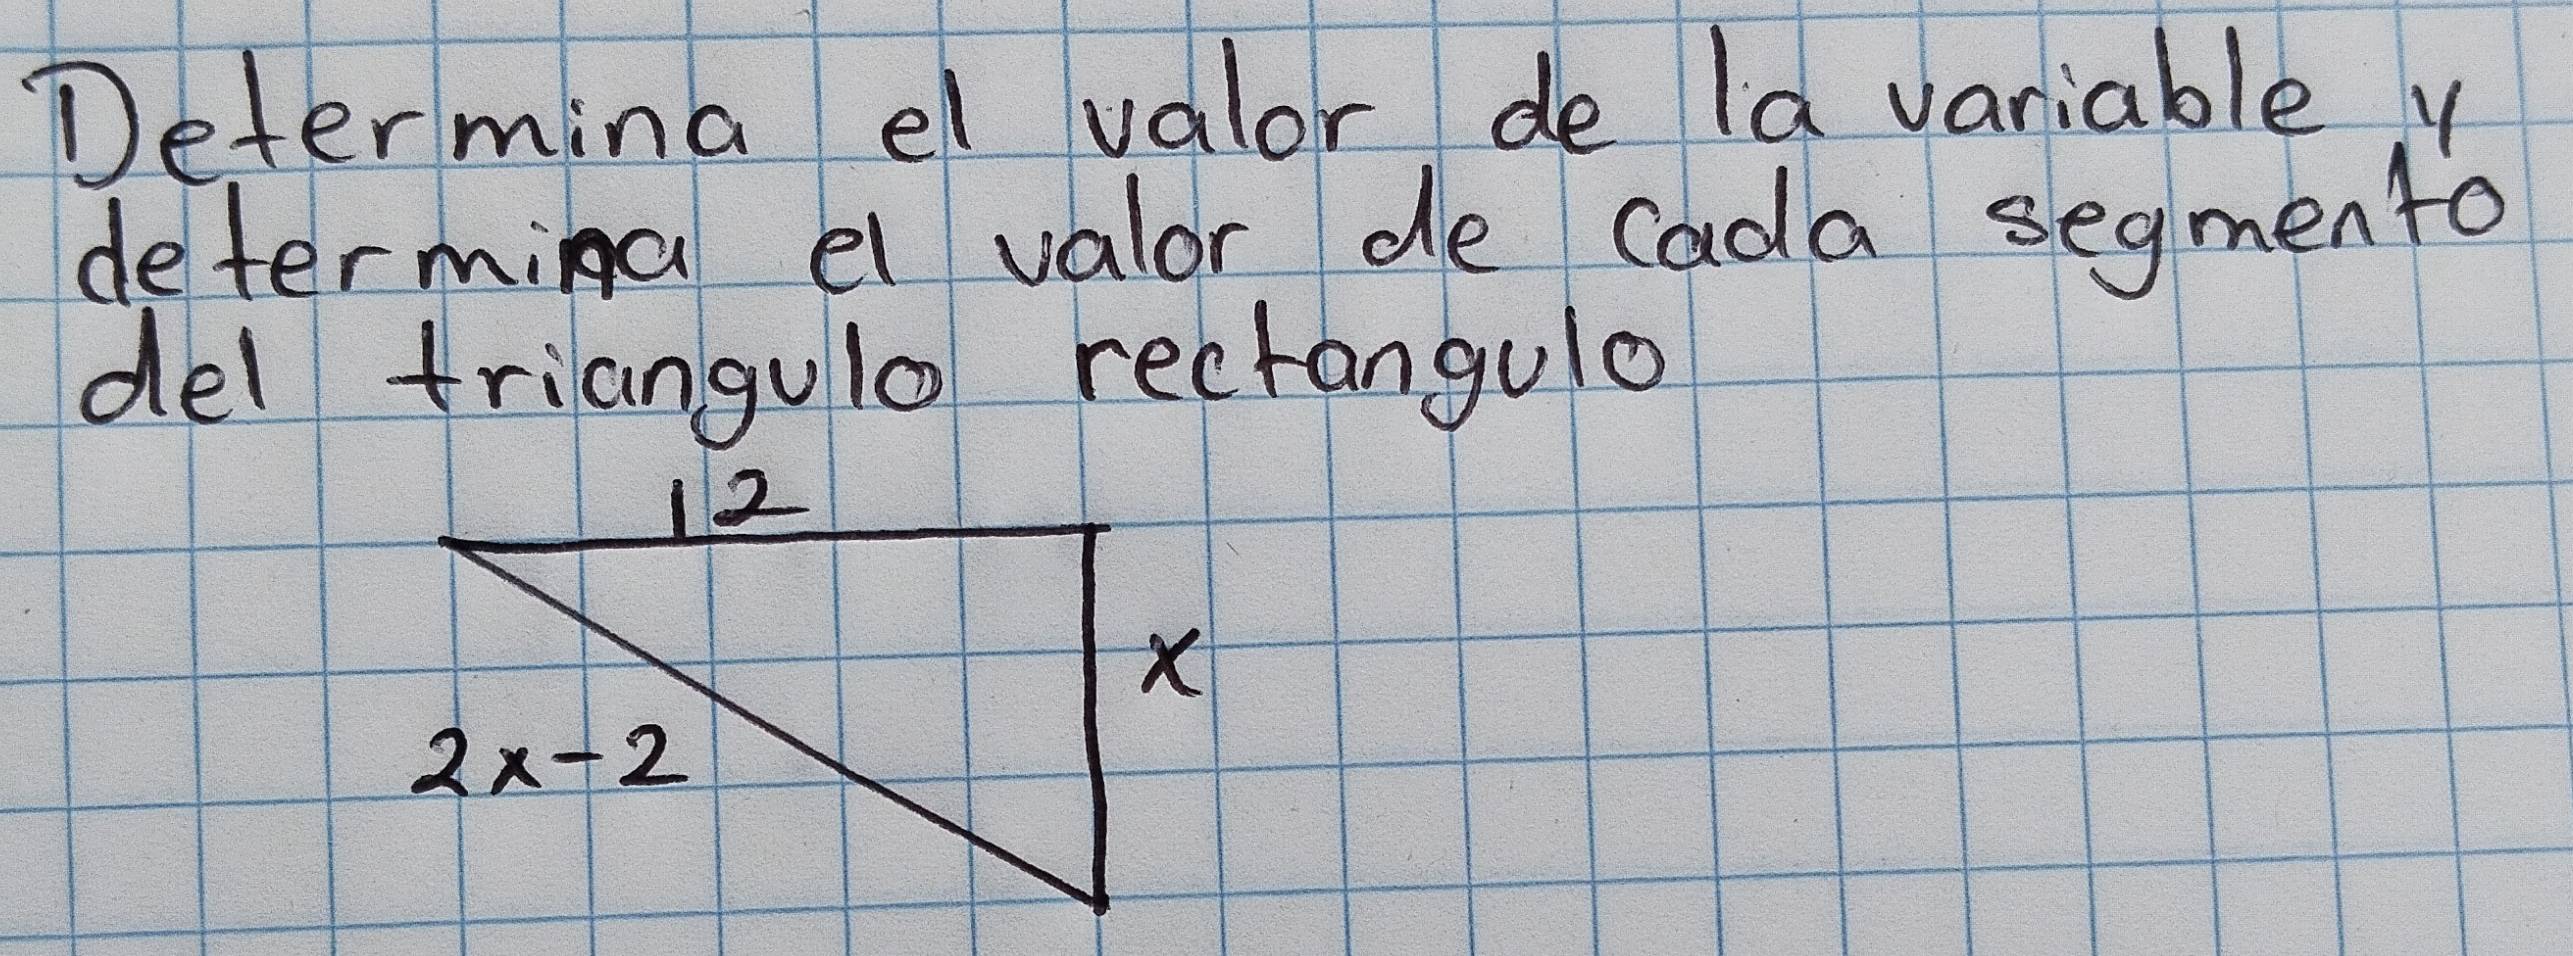 Determina el valor de la variable y
determina el valor de cada segmento
del triangulo rectangulo
12
x
2x-2